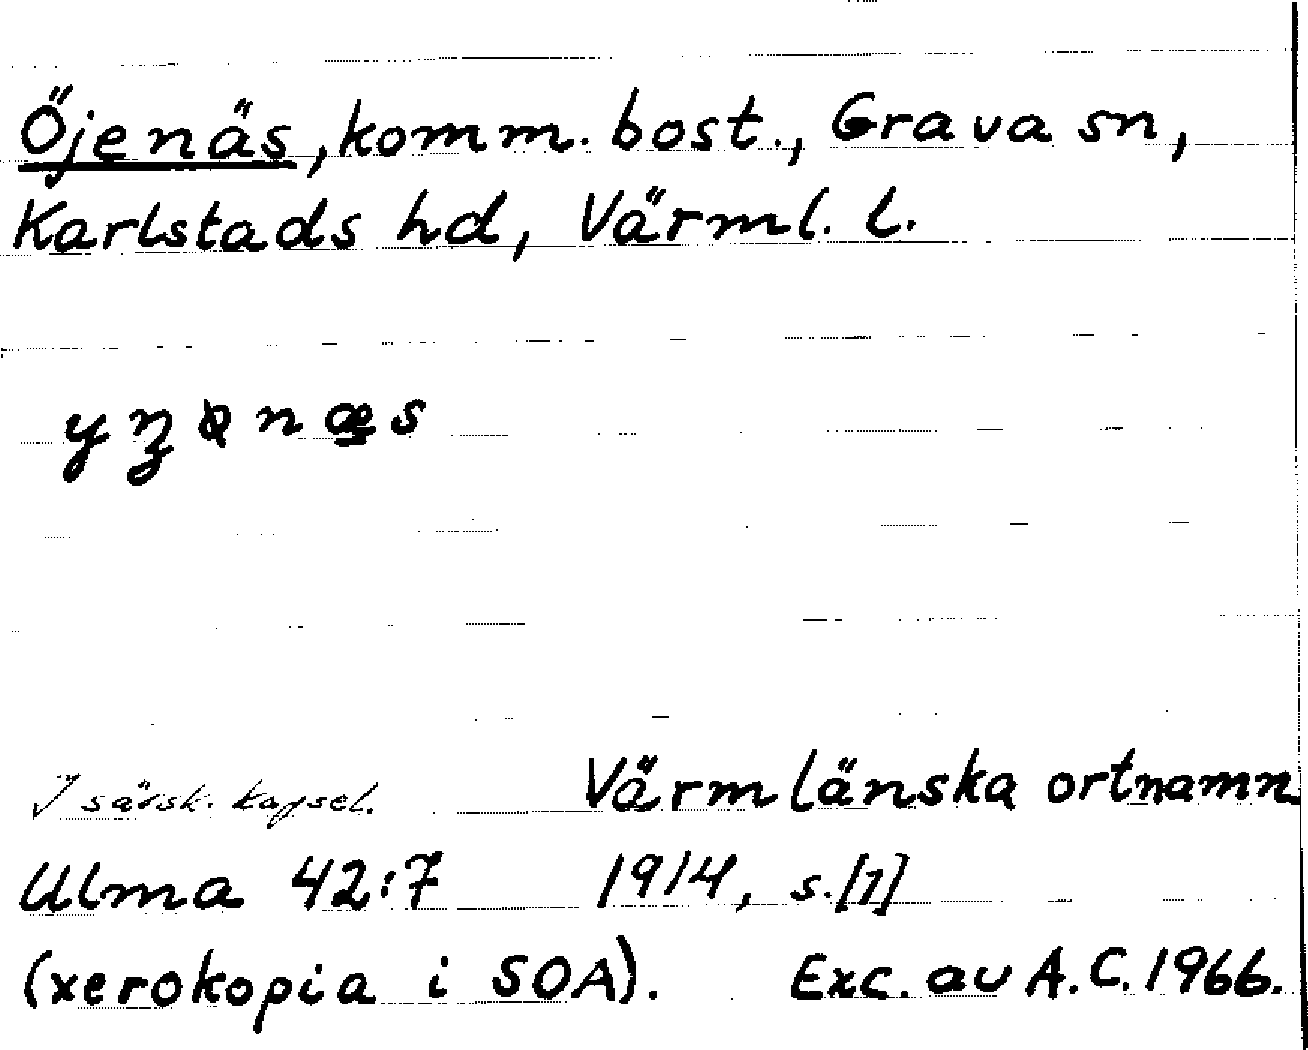 Öjenäs, komm. bost., Grava sn,
Karlstads hd, Värml. l.
I särsk. kapsel.
Värmländska ortnamn
Ulma 42:7 1914, s. [1]
(xerokopia i SOA). Exc. av A.C. 1966.